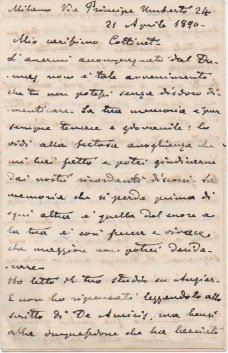 Milano Via Principe Umberto 24
21 Aprile 1890 -
Mio carissimo Cottinet -
L'avermi accompagnato dal Du-
mas non è tale avvenimento
che tu non potessi senza disdoro di-
menticare. La tua memoria è pur
sempre tenera e giovanile: lo
vidi alla festosa accoglienza che
mi hai fatto e potei giudicarne
dai nostri ricordanti discorsi. La
memoria che si perde prima di
ogni altra è quella del cuore e
la tua è così fresca e vivace
che maggiore non potrei deside-
rare -
Ho letto il tuo studio su Augier
e non ho ripensato leggendolo allo
scritto di De Amicis, ma bensì
alla che ha lasciato